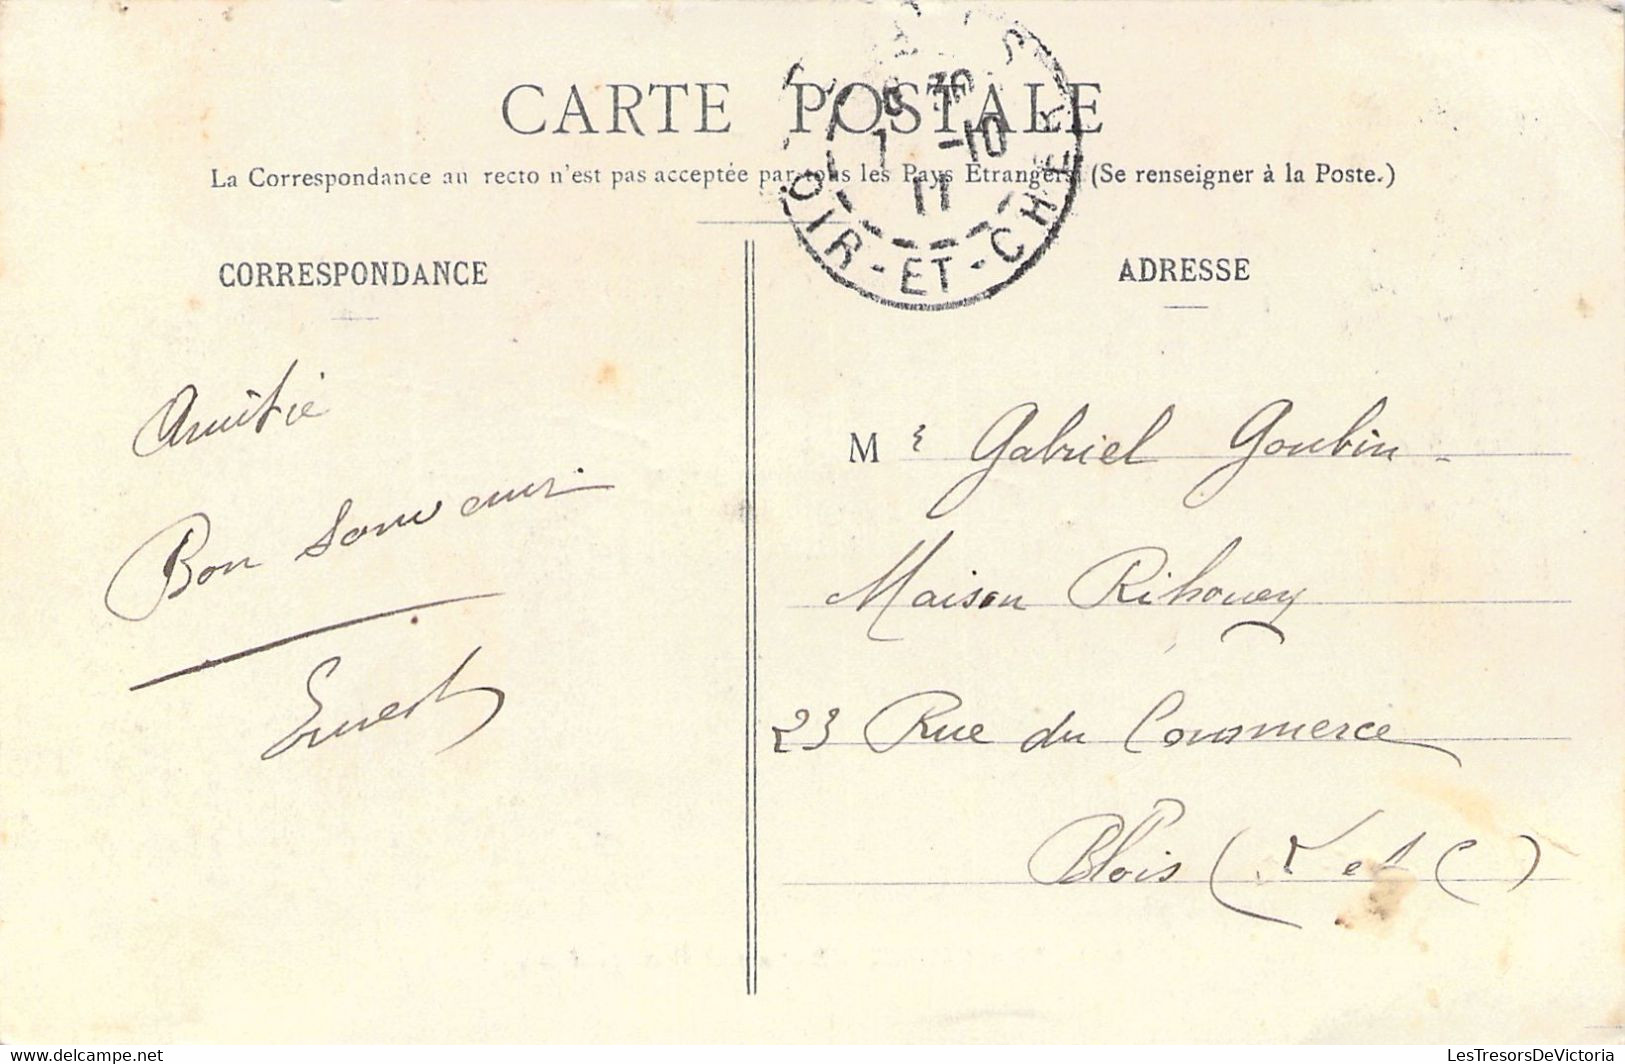 CARTE POSTALE
La Correspondance au recto n'est pas acceptée par tous les Pays Etrangers (Se renseigner à la Poste.)
8 30
7 -10
11
LOIR-ET-CHER
CORRESPONDANCE
Amitié
Bon Souvenir
Ernest
ADRESSE
Mr Gabriel Goubin
Maison Rihouey
23 Rue du Commerce
Blois (L et C)
LesTresorsDeVictoria
www.delcampe.net